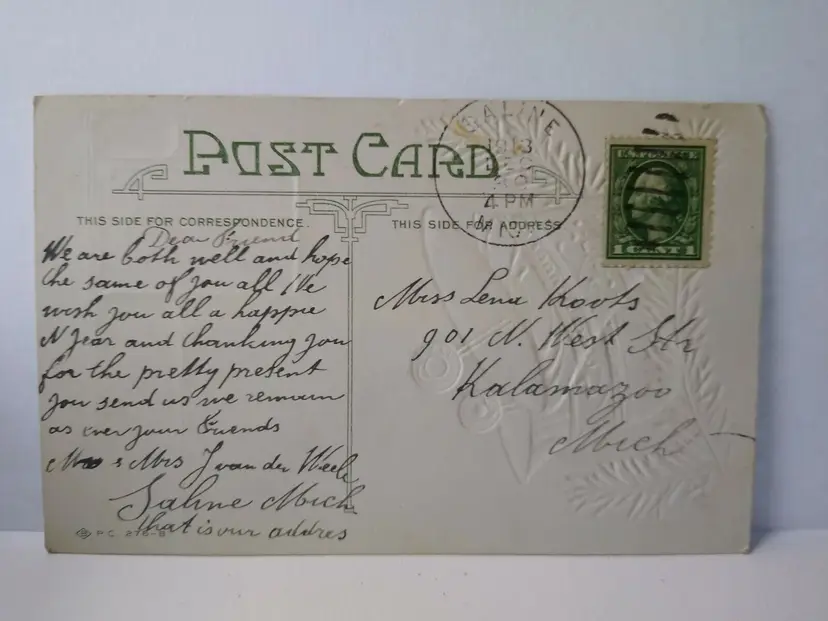 POST CARD
THIS SIDE FOR CORRESPONDENCE.
THIS SIDE FOR ADDRESS
SALINE
1913
DEC
4 PM
MICH
U.S. POSTAGE
1 CENT 1
Dear Friend
We are both well and hope
the same of you all We
wish you all a happie
N Jear and thanking you
for the pretty present
you send us we remain
as ever your Friends
Mr & Mrs J van der
Saline Mich
that is our addres
P C 276-B
Miss Lena Koots
901 N. West Str
Kalamazoo
Mich